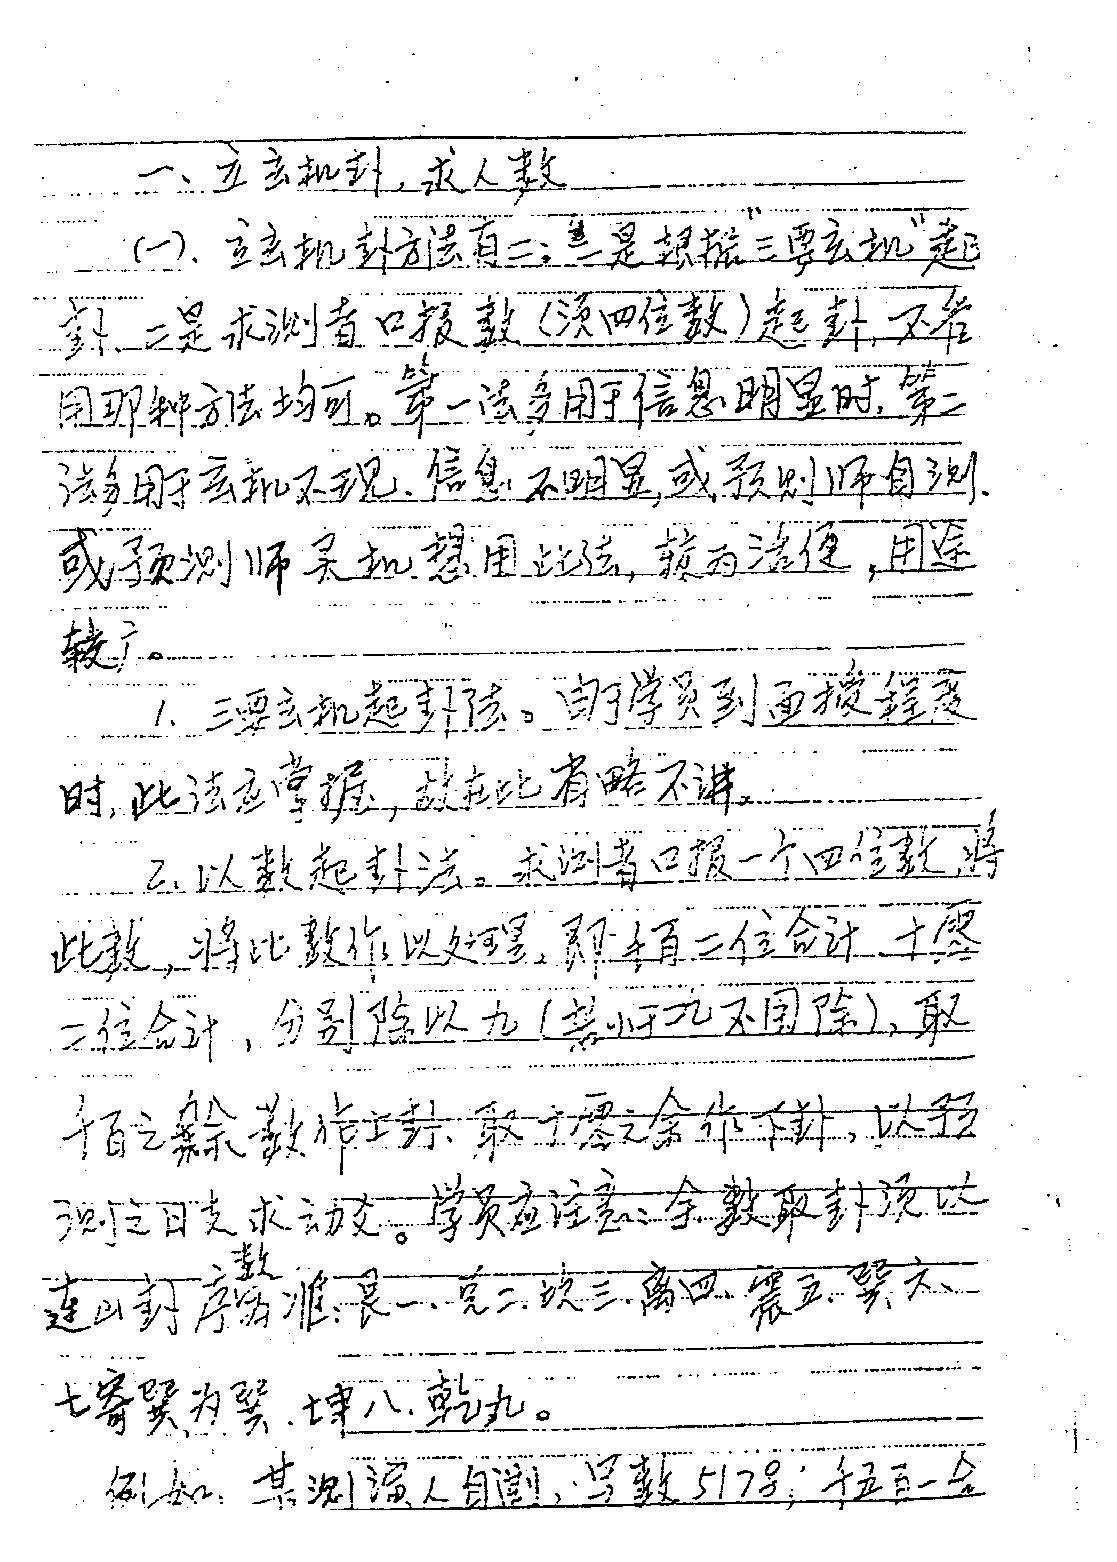 一、立玄机卦，求人数
(一)、立玄机卦方法有二：一是根据“三要玄机”起
卦、二是求测者口报数（须四位数）起卦，不管
用那种方法均可。第一法多用于信息明显时，第二
法多用于玄机不现、信息不明显，或预测师自测、
或预测师灵机想用此法，较为活便，用途
较广。
1. 三要玄机起卦法。由于学员到面授程度
时，此法应掌握，故在此省略不讲。
2、以数起卦法。求测者口报一个四位数，将
此数，将此数作以处理，即千百二位合计、十零
二位合计，分别除以九（若小于九不用除），取
千百之余数作上卦、取十零之余作下卦，以预
测之日支求动爻。学员应注意：余数取卦须以
连山卦序数为准、艮一、兑二、坎三、离四、震五、巽六、
七寄巽为巽、坤八、乾九。
例如、某测演人自测，写数5178；千五百一合